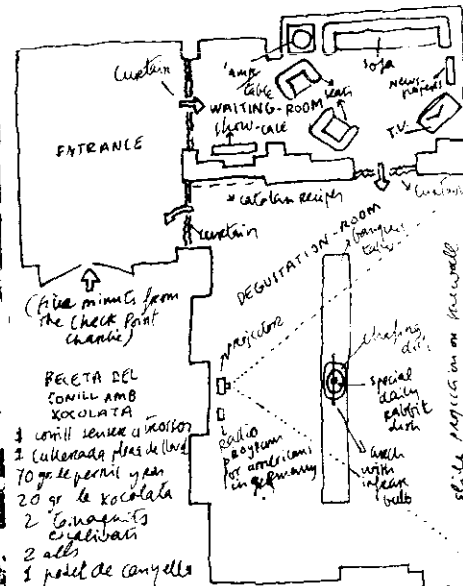 Curtain
ENTRANCE
lamp
table
sofa
NEWS-
PAPERS
WAITING-ROOM
seats
show-case
T.V.
* catalan recipes
curtain
curtain
DEGUSTATION-ROOM
banquet
table
(five minutes from
the Check Point
Charlie)
projector
chafing
dish
special
daily
rabbit
dish
radio
program
for americans
in germany
with
infrared
bulb
slide projection on the wall
RECETA DEL
CONILL AMB
XOCOLATA
1 conill sencer a trossos
1 cullerada plena de llard
70 gr. de pernil
20 gr. de xocolata
2 tomaquets
escalivats
2 alls
1 polset de canyella